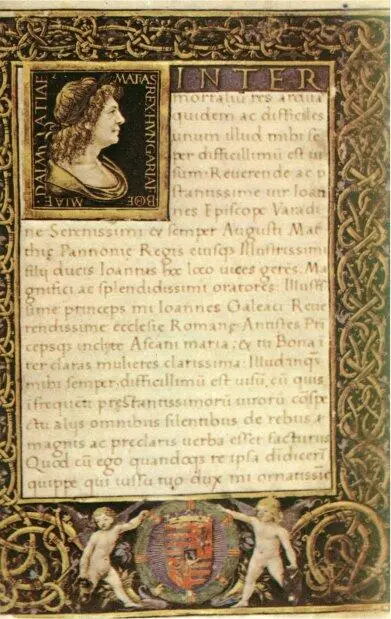 MATIAS REX HVNGARIAE BOE
MIAE DALMATIAE
INTER
mortaliū res ardua
quidem ac difficiles
unum illud mihi se
per difficillimū est ui
sum: Reuerende ac p
stantissime uir Ioan
nes Episcope Varadi
ne Serenissimi & semper Augusti Mat
thię Pannonie Regis eiusqꝫ Illustrissimi
filij ducis Ioannis hoc loco uices gerēs. Ma
gnifici ac splendidissimi oratores: Illuss
sime princeps mi Ioannes Galeaci Reue
rendissime ecclesie Romanę Antistes Pri
cepsqꝫ inclyte Ascani maria: & tu Bona i
ter claras mulieres clarissima: Illud inqꝫ
mihi semper difficillimū est uisū, cū quis
i frequēti pręstantissimorū uirorū cōspe
ctu alijs omnibus silentibus de rebus
magnis ac preclaris uerba esset facturus
Quod cū ego quandoqꝫ re ipsa didicerī
quippe qui iussu tuo dux mi ornatissie